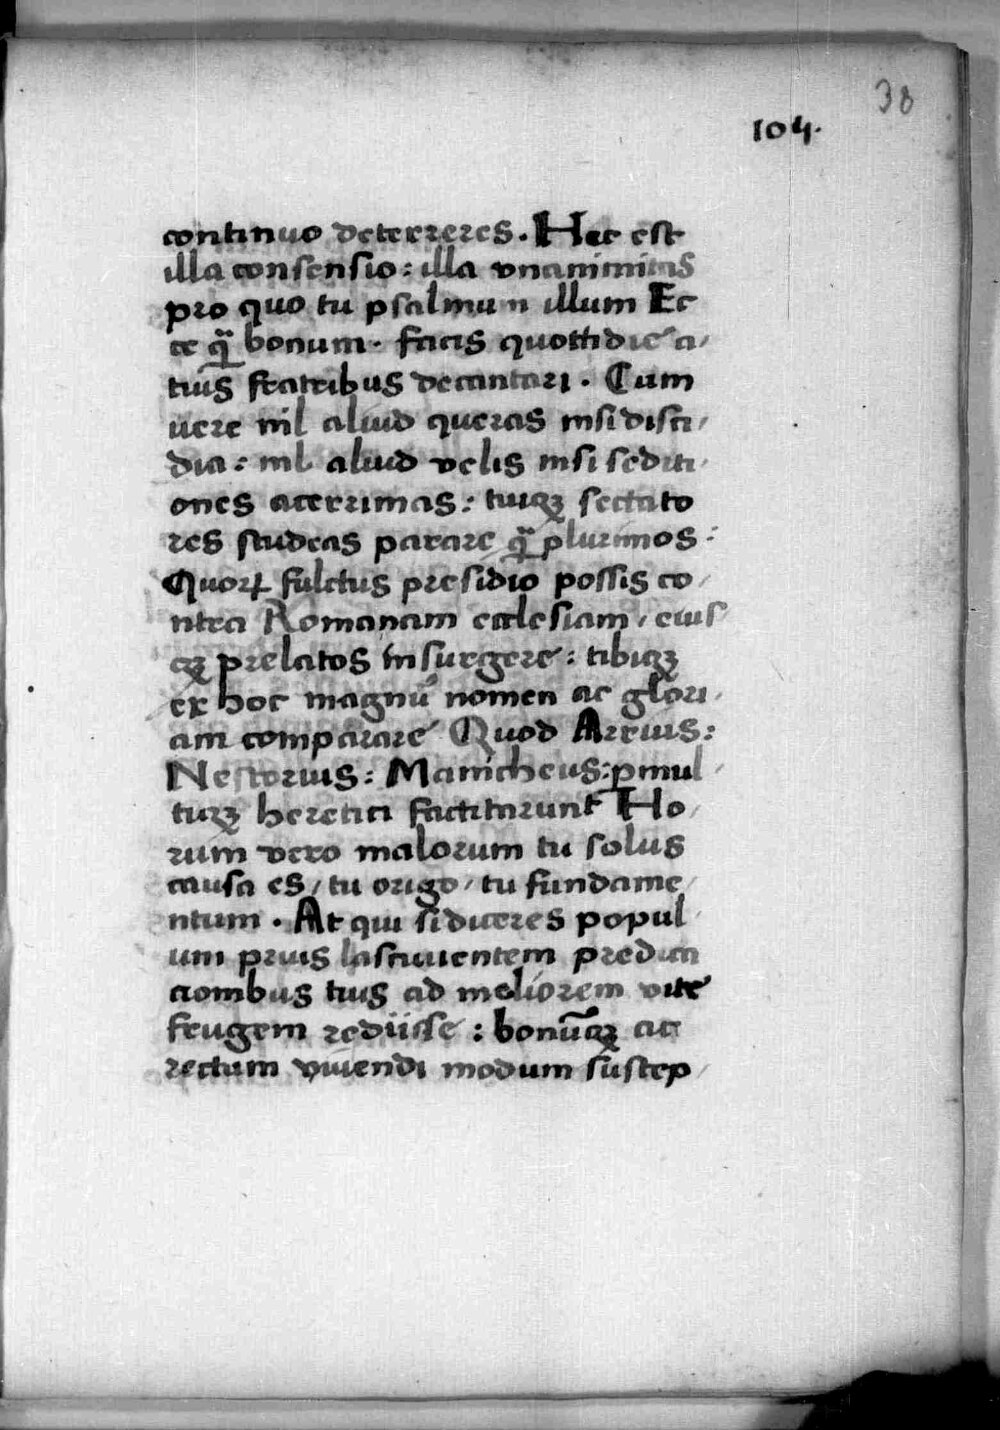 38
104.
continuo deterreres. Hec est
illa consensio: illa vnanimitas
pro quo tu psalmum illum Ec
ce qͣ bonum. facis quottidie a/
tuis fratribus decantari. Cum
uere nil aliud queras nisi disci/
dia: nil aliud velis nisi sediti/
ones acerrimas: tuiqꝫ sectato
res studeas parare qͣ plurimos:
Quorꝝ fultus presidio possis co/
ntra Romanam ecclesiam, eius
qꝫ prelatos insurgere: tibiqꝫ
ex hoc magnū nomen ac glori/
am comparare Quod Arrius:
Nestorius: Manicheus: pmul/
tiqꝫ heretici factitarunt Ho/
rum vero malorum tu solus
causa es/ tu origo/ tu fundame/
ntum. At qui si diceres popul/
um prius lasciuientem predica
cionibus tuis ad meliorem vite
frugem redüsse: bonūqꝫ ac
rectum viuendi modum suscep/